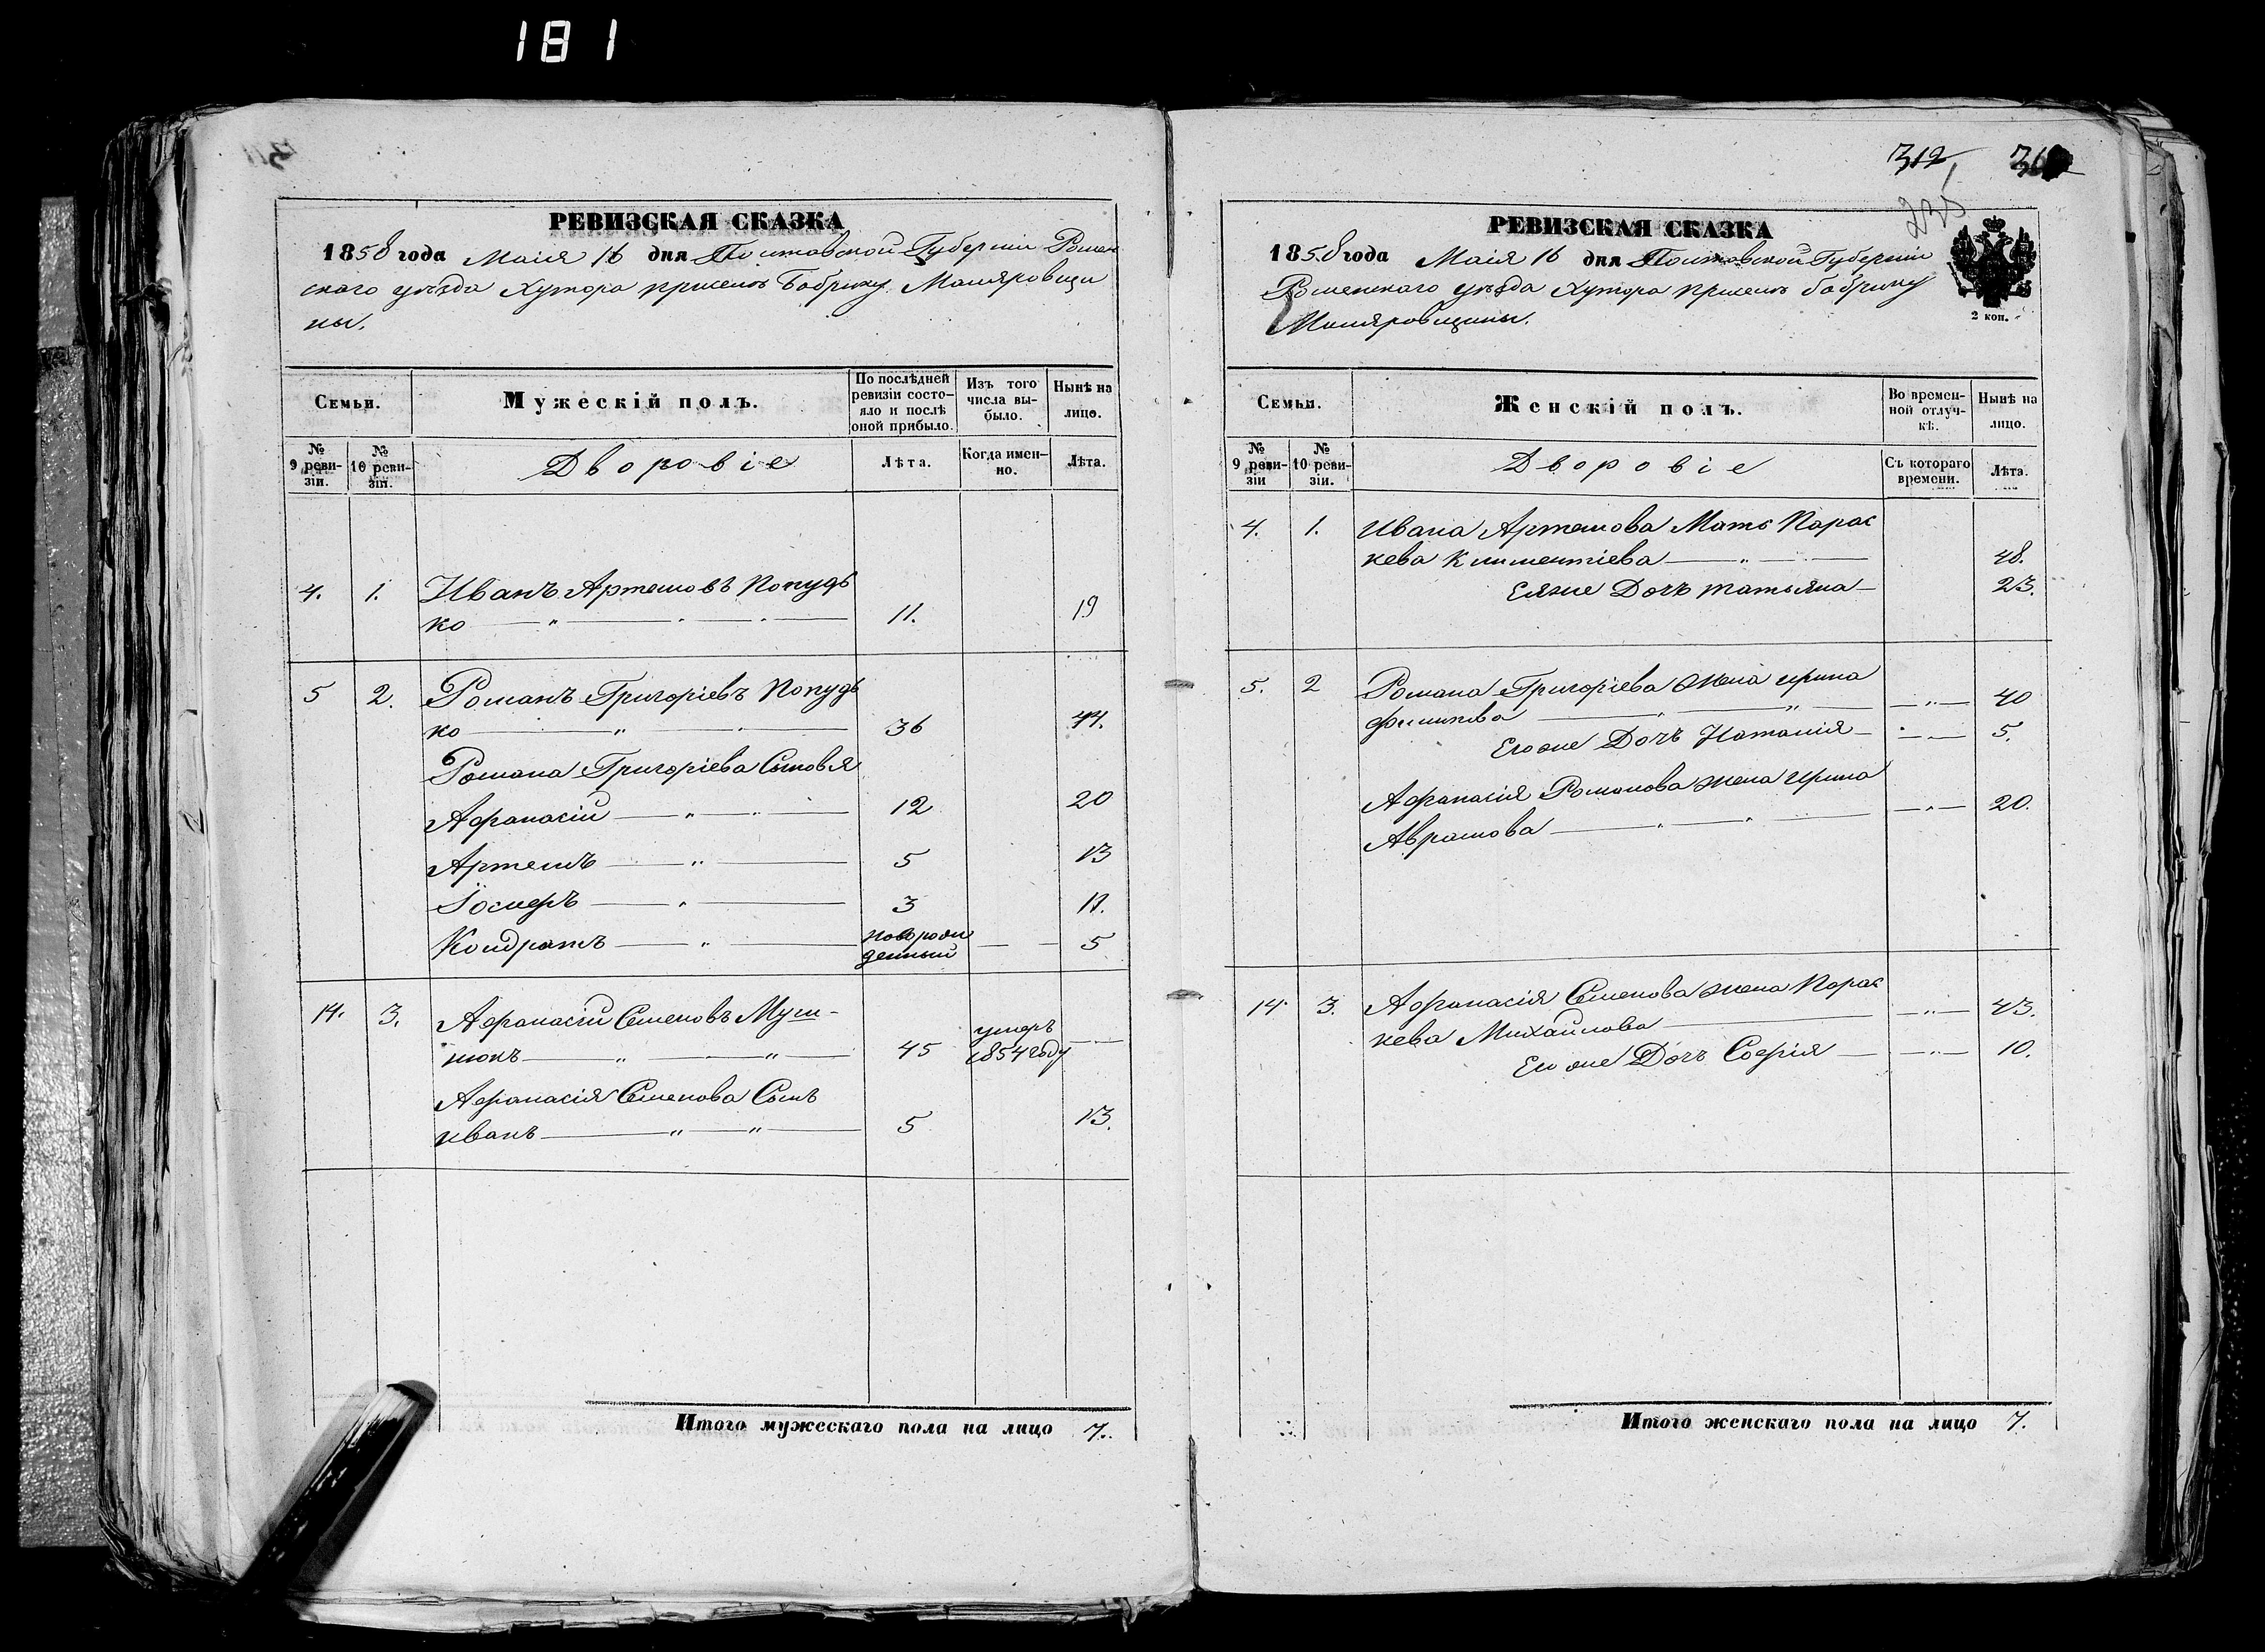 181
РЕВИЗСКАЯ СКАЗКА
1858 года Маія 16 дня Полтавской Губерніи Ромен
скаго уѣзда Хутора при селѣ Бобрику Маляровщи
ны.
Семьи.
Мужескій полъ.
По послѣдней ревизіи состо-
яло и послѣ
оной прибыло.
Изъ того
числа вы-
было.
Нынѣ на
лицо.
№
9 реви-
зіи.
№
10 реви-
зіи.
Дворовіе
Лѣта.
Когда имен-
но.
Лѣта.
4. 1. Иванъ Артемовъ Попудь
ко — " — 11. 19
5 2. Романъ Григоріевъ Попудь
ко — " — 36 44.
Романа Григоріева Сыновья
Афанасій — " — 12 20
Артемъ — " — 5 13
Іосифъ — " — 3 11.
Кондратъ — " — новорож
денный — 5
14. 3. Афанасій Семеновъ
нюкъ — " — " — 45 умеръ
1854 году —
Афанасія Семенова Сынъ
Иванъ — " — " — 5 13.
Итого мужескаго пола на лицо 7.
312
235
РЕВИЗСКАЯ СКАЗКА
1858 года Маія 16 дня Полтавской Губерніи
Роменскаго уѣзда Хутора при селѣ Бобрику
Маляровщины.
2 коп.
Семьи.
Женскій полъ.
Во времен-
ной отлуч-
кѣ.
Нынѣ на
лицо.
№
9 реви-
зіи
№
10 реви-
зіи.
Дворовіе
Съ котораго
времени.
Лѣта.
4. 1. Ивана Артемова Мать Парас
кева Климентіева — " — 48.
Еяже Дочь Татьяна — 23.
5. 2 Романа Григоріева жена Ирина
Филипова — " — " — — " — 40
Егоже Дочь Наталія — — " — 5.
Афанасія Романова жена Ирина
Аврамова — " — " — — " — 20.
14. 3. Афанасія Семенова жена Парас
кева Михайлова — — " — 43.
Егоже Дочь Софія — — " — 10.
Итого женскаго пола на лицо 7.